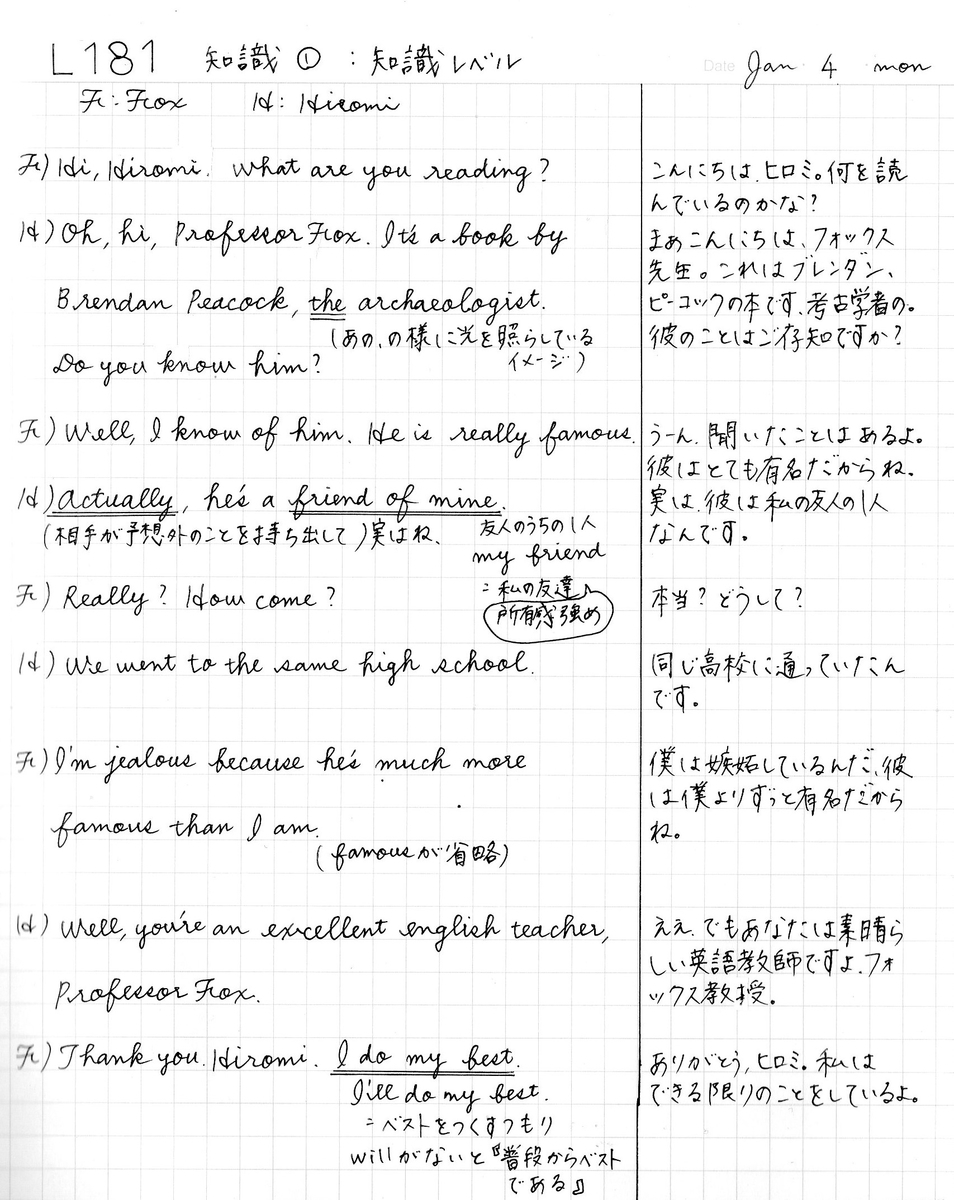 L181 知識① : 知識レベル Date Jan 4 mon
F: Fox H: Hiromi
F) Hi, Hiromi. What are you reading?
こんにちは、ヒロミ。何を読
んでいるのかな?
H) Oh, hi, Professor Fox. It's a book by
Brendan Peacock, the archaeologist.
(あの、の様に光を照らしている
イメージ)
Do you know him?
まぁこんにちは、フォックス
先生。これはブレンダン、
ピーコックの本です、考古学者の。
彼のことはご存知ですか?
F) Well, I know of him. He is really famous.
うーん、聞いたことはあるよ。
彼はとても有名だからね。
H) Actually, he's a friend of mine.
(相手が予想外のことを持ち出して)実はね、
友人のうちの1人
my friend
=私の友達
所有感強め
実は、彼は私の友人の1人
なんです。
F) Really? How come?
本当?どうして?
H) We went to the same high school.
同じ高校に通っていたん
です。
F) I'm jealous because he's much more
famous than I am.
(famousが省略)
僕は嫉妬しているんだ、彼
は僕よりずっと有名だから
ね。
H) Well, you're an excellent english teacher,
Professor Fox.
ええ、でもあなたは素晴ら
しい英語教師ですよ、フォ
ックス教授。
F) Thank you. Hiromi. I do my best.
I'll do my best.
=ベストをつくすつもり
willがないと『普段からベスト
である』
ありがとう、ヒロミ。私は
できる限りのことをしているよ。